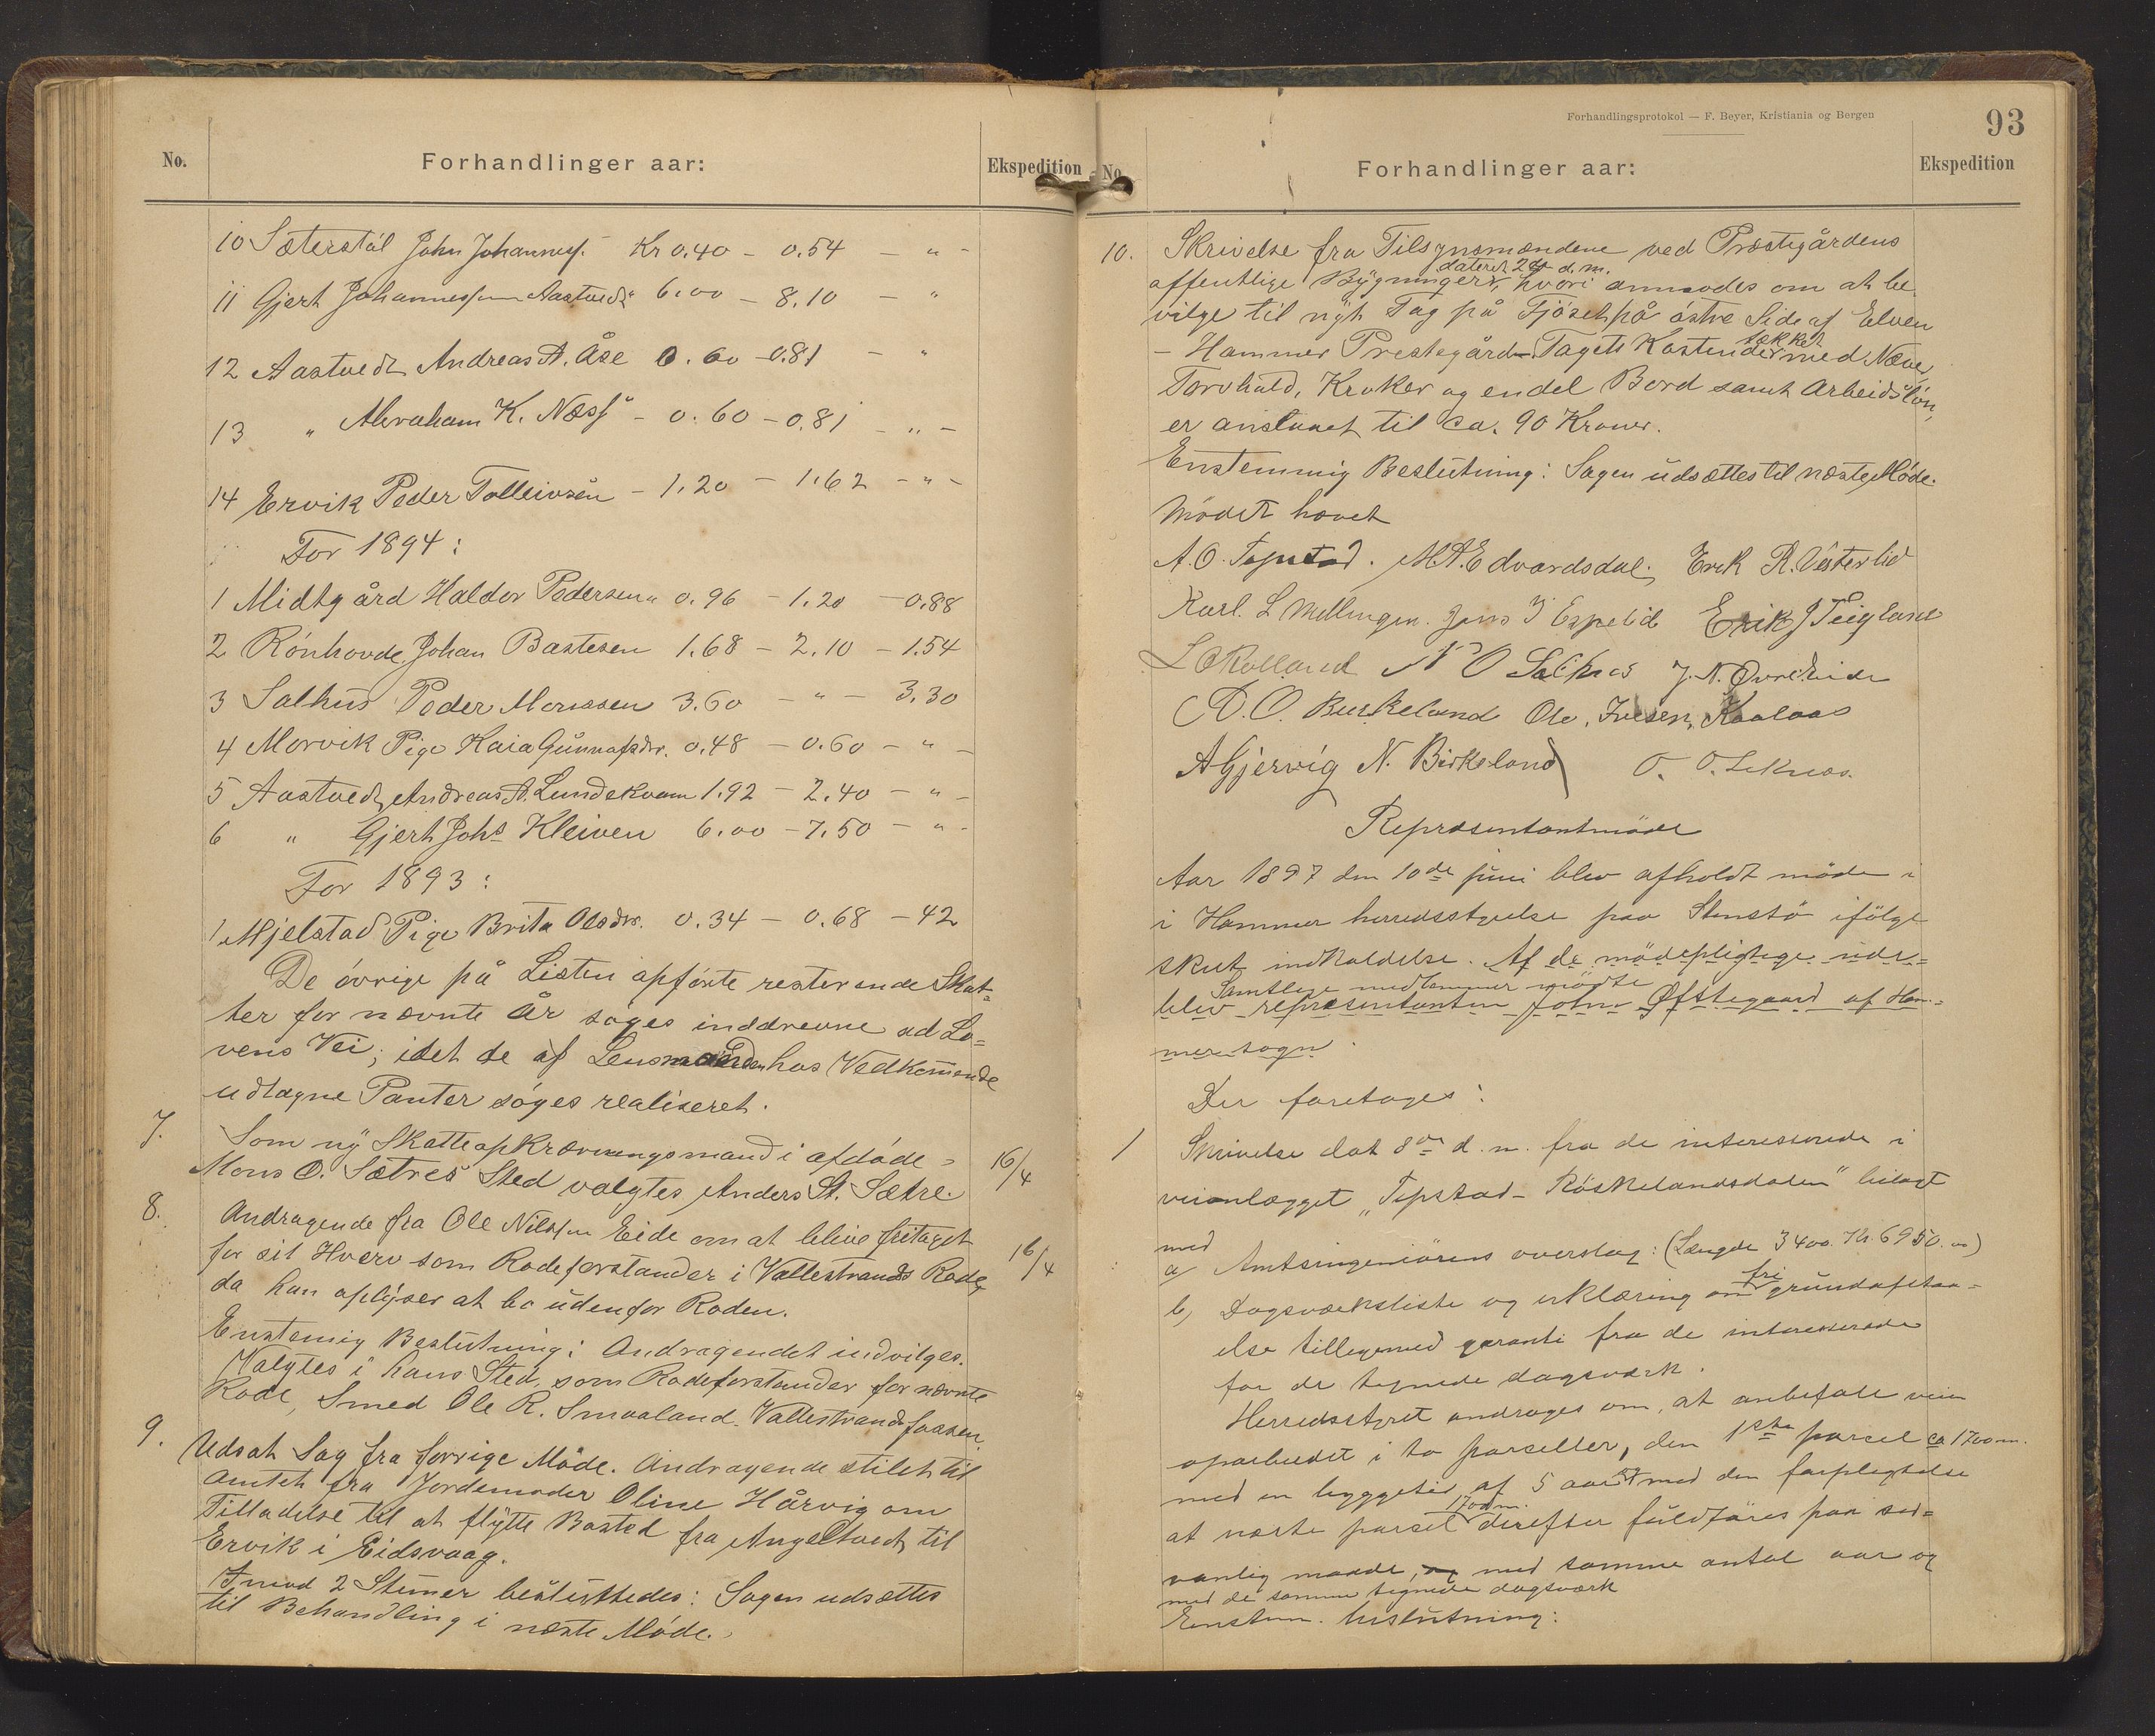 No. Forhandlinger aar: Ekspedition
10 Sæterstøl John Johanness. Kr 0.40 - 0.54 - " -
11 Gjert Johannessen Aastvedt 6.00 - 8.10 - "
12 Aastvedt Andreas A. Åse 0.60 - 0.81 - "
13 " Abraham K. Næss - 0.60 - 0.81 - " -
14 Ervik Peder Tolleivsen - 1.20 - 1.62 - " -
For 1894:
1 Midtgård Haldor Pedersen " 0.96 - 1.20 - 0.88
2 Rönhovde Johan Bastesen 1.68 - 2.10 - 1.54
3 Salhus Peder Monssen 3.60 - " - 3.30
4 Morvik Pige Kaia Gunnarsdtr. 0.48 - 0.60 - " -
5 Aastvedt, Andreas A. Lundekvam 1.92 - 2.40 - " -
6 " Gjert Johs Kleiven 6.00 - 7.50 - " -
For 1893:
1 Mjelstad Pige Brita Olsdtr. 0.34 - 0.68 - 42
De óvrige på Listen opfórte resterende Skat-
ter for nævnte År søges inddrevne ad Lo-
vens Vei; idet de af Lensmanden hos Vedkommende
udtagne Panter sóges realiseret.
7. Som ny Skatteopkrævningsmand i afdóde - 16/4
Mons O. Sætres Sted valgtes Anders St. Sætre.
8. Andragende fra Ole Nilssen Eide om at blive fritaget 16/4
for sit Hverv som Rodeforstander i Vallestrands Rode,
da han oplyser at bo udenfor Roden.
Enstemig Beslutning: Andragendet indvilges.
Valgtes i hans Sted, som Rodeforstander for nævnte
Rode, Smed Ole R. Smaaland. Vallestrandsfossen.
9. Udsat Sag fra forrige Móde. Andragende stilet til
Amtet fra Jordemoder Oline Hårvig om
Tilladelse til at flytte Bosted fra Angeltvedt til
Ervik i Eidsvaag.
Imod 2 Stemer besluttedes: Sagen udsættes
til Behandling i næste Móde.
Forhandlingsprotokol — F. Beyer, Kristiania og Bergen
93
No. Forhandlinger aar: Ekspedition
10. Skrivelse fra Tilsynsmændene ved Præstegårdens
dateret 2de d.m.
offentlige Bygninger, hvori anmodes om at be-
vilge til nyt Tag på Fjöset på óstre Side af Elven
tækket
- Hammer Prestegård - Tagets Kostende med Næver,
Torvhald, Kroker og endel Bord samt Arbeidslón,
er anslaaet til ca. 90 Kroner.
Enstemmig Beslutning: Sagen udsættes til næste Móde.
Módet hævet
A. O. Topstad. M A. Edvardsdal. Erik R. Vesterlid
Karl. L Mellingen. Jens J Espelid Erik J Teigland
L O Rolland N O Salhus J. N. Øvreheide
A. O. Burkeland Ole. Ivesen, Kaalaas
A Gjervig N. Birkeland O. O. Leknes.
Repræsentantmöde
Aar 1897 den 10de juni blev afholdt möde i
i Hammer herredsstyrelse paa Stenstö ifölge
sket indkaldelse. Af de mödepligtige ude-
Samtlige medlemmer mödte
blev repræsentanten John Øfstegaard af Ham-
mer sogn.
Der foretoges:
1 Skrivelse dat 8de d. m. fra de interesserede i
veianlægget "Topstad - Röskelandsdalen" bilagt
med
a, Amtsingeniörens overslag: (Længde 3400. Kr. 6950.00)
fri
b, Dagsværksliste og erklæring om grundafstaa-
else tillegemed garanti fra de interesserede
for de tegnede dagsværk.
Herredsstyret andrages om, at anbefale veien
oparbeidet i to parseller, den 1ste parsel ca 1700m.
med en byggetid af 5 aar med den forpligtelse
1700m.
at næste parsel derefter fuldföres paa sed-
vanlig maade, med samme antal aar og
med de samme tegnede dagsværk
Enstem. beslutning: